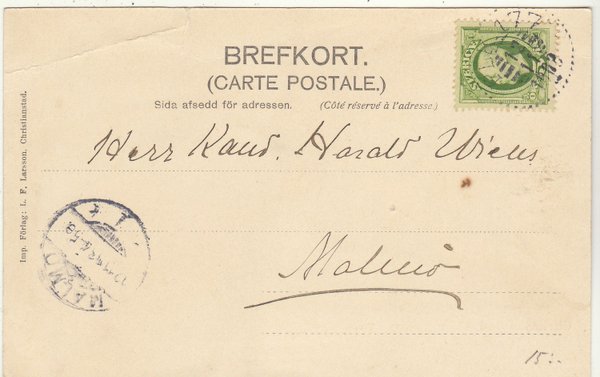 BREFKORT.
(CARTE POSTALE.)
Sida afsedd för adressen. (Côté réservé à l'adresse.)
Herr Kand. Harald Wiens
Malmö
Imp. Förlag: L. F. Larsson, Christianstad.
SVERIGE
177
MALMÖ
15:-